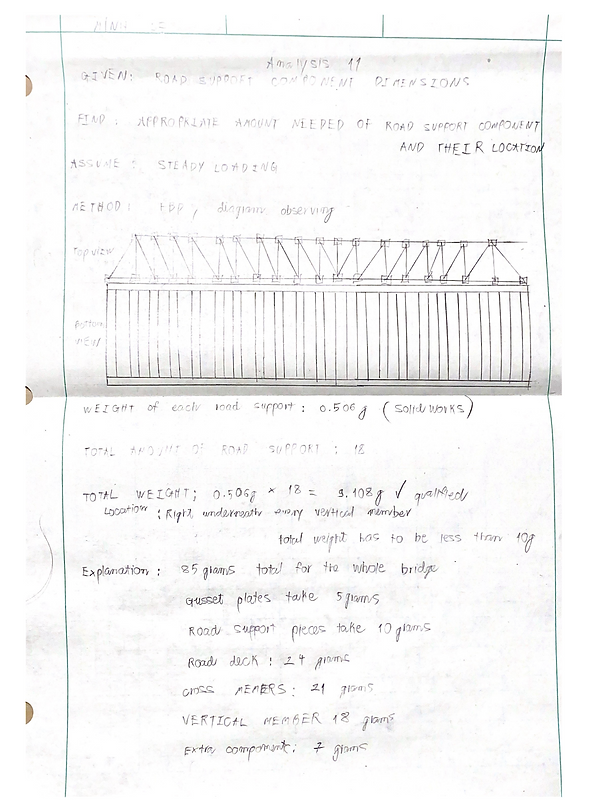 MINH LE
Analysis 11
GIVEN: ROAD SUPPORT COMPONENT DIMENSIONS
FIND: APPROPRIATE AMOUNT NEEDED OF ROAD SUPPORT COMPONENT
AND THEIR LOCATION
ASSUME: STEADY LOADING
METHOD: FBD, diagram observing
Top view
Bottom
VIEW
WEIGHT of each road support: 0.506g (Solidworks)
TOTAL AMOUNT OF ROAD SUPPORT: 18
TOTAL WEIGHT; 0.506g × 18 = 9.108g ✓ qualified
Location: Right underneath every vertical member
total weight has to be less than 10g
Explanation: 85 grams total for the whole bridge
Gusset plates take 5 grams
Road support pieces take 10 grams
Road deck: 24 grams
CROSS MEMERS: 21 grams
VERTICAL MEMBER 18 grams
Extra component: 7 grams